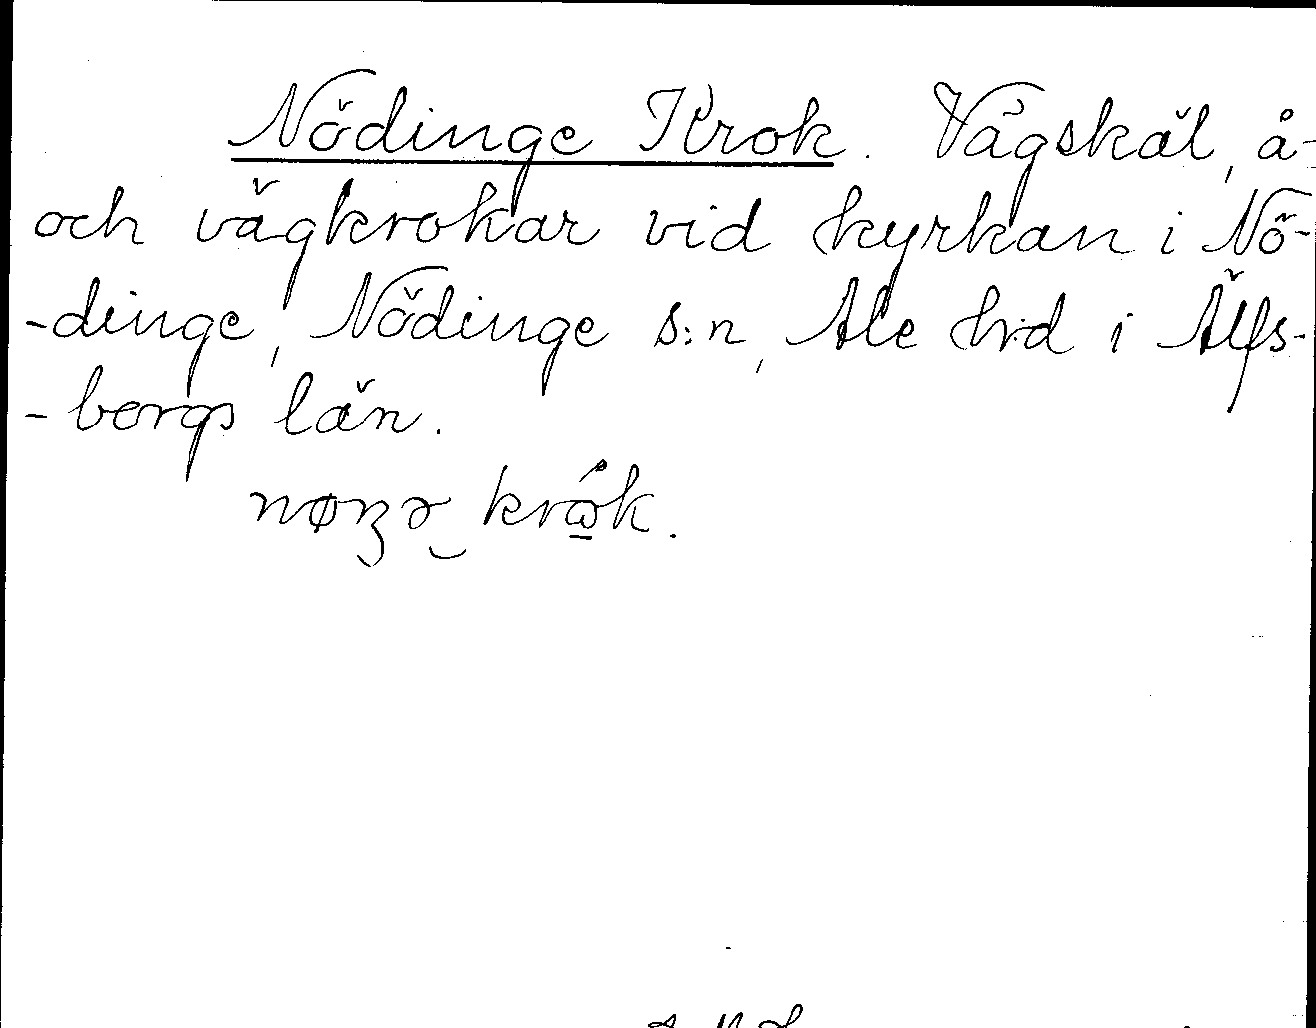 Nödinge Krok. Vägskäl, å-
och vägkrokar vid kyrkan i Nö-
-dinge, Nödinge s:n, Ale hrd i Älfs-
-bergs län.